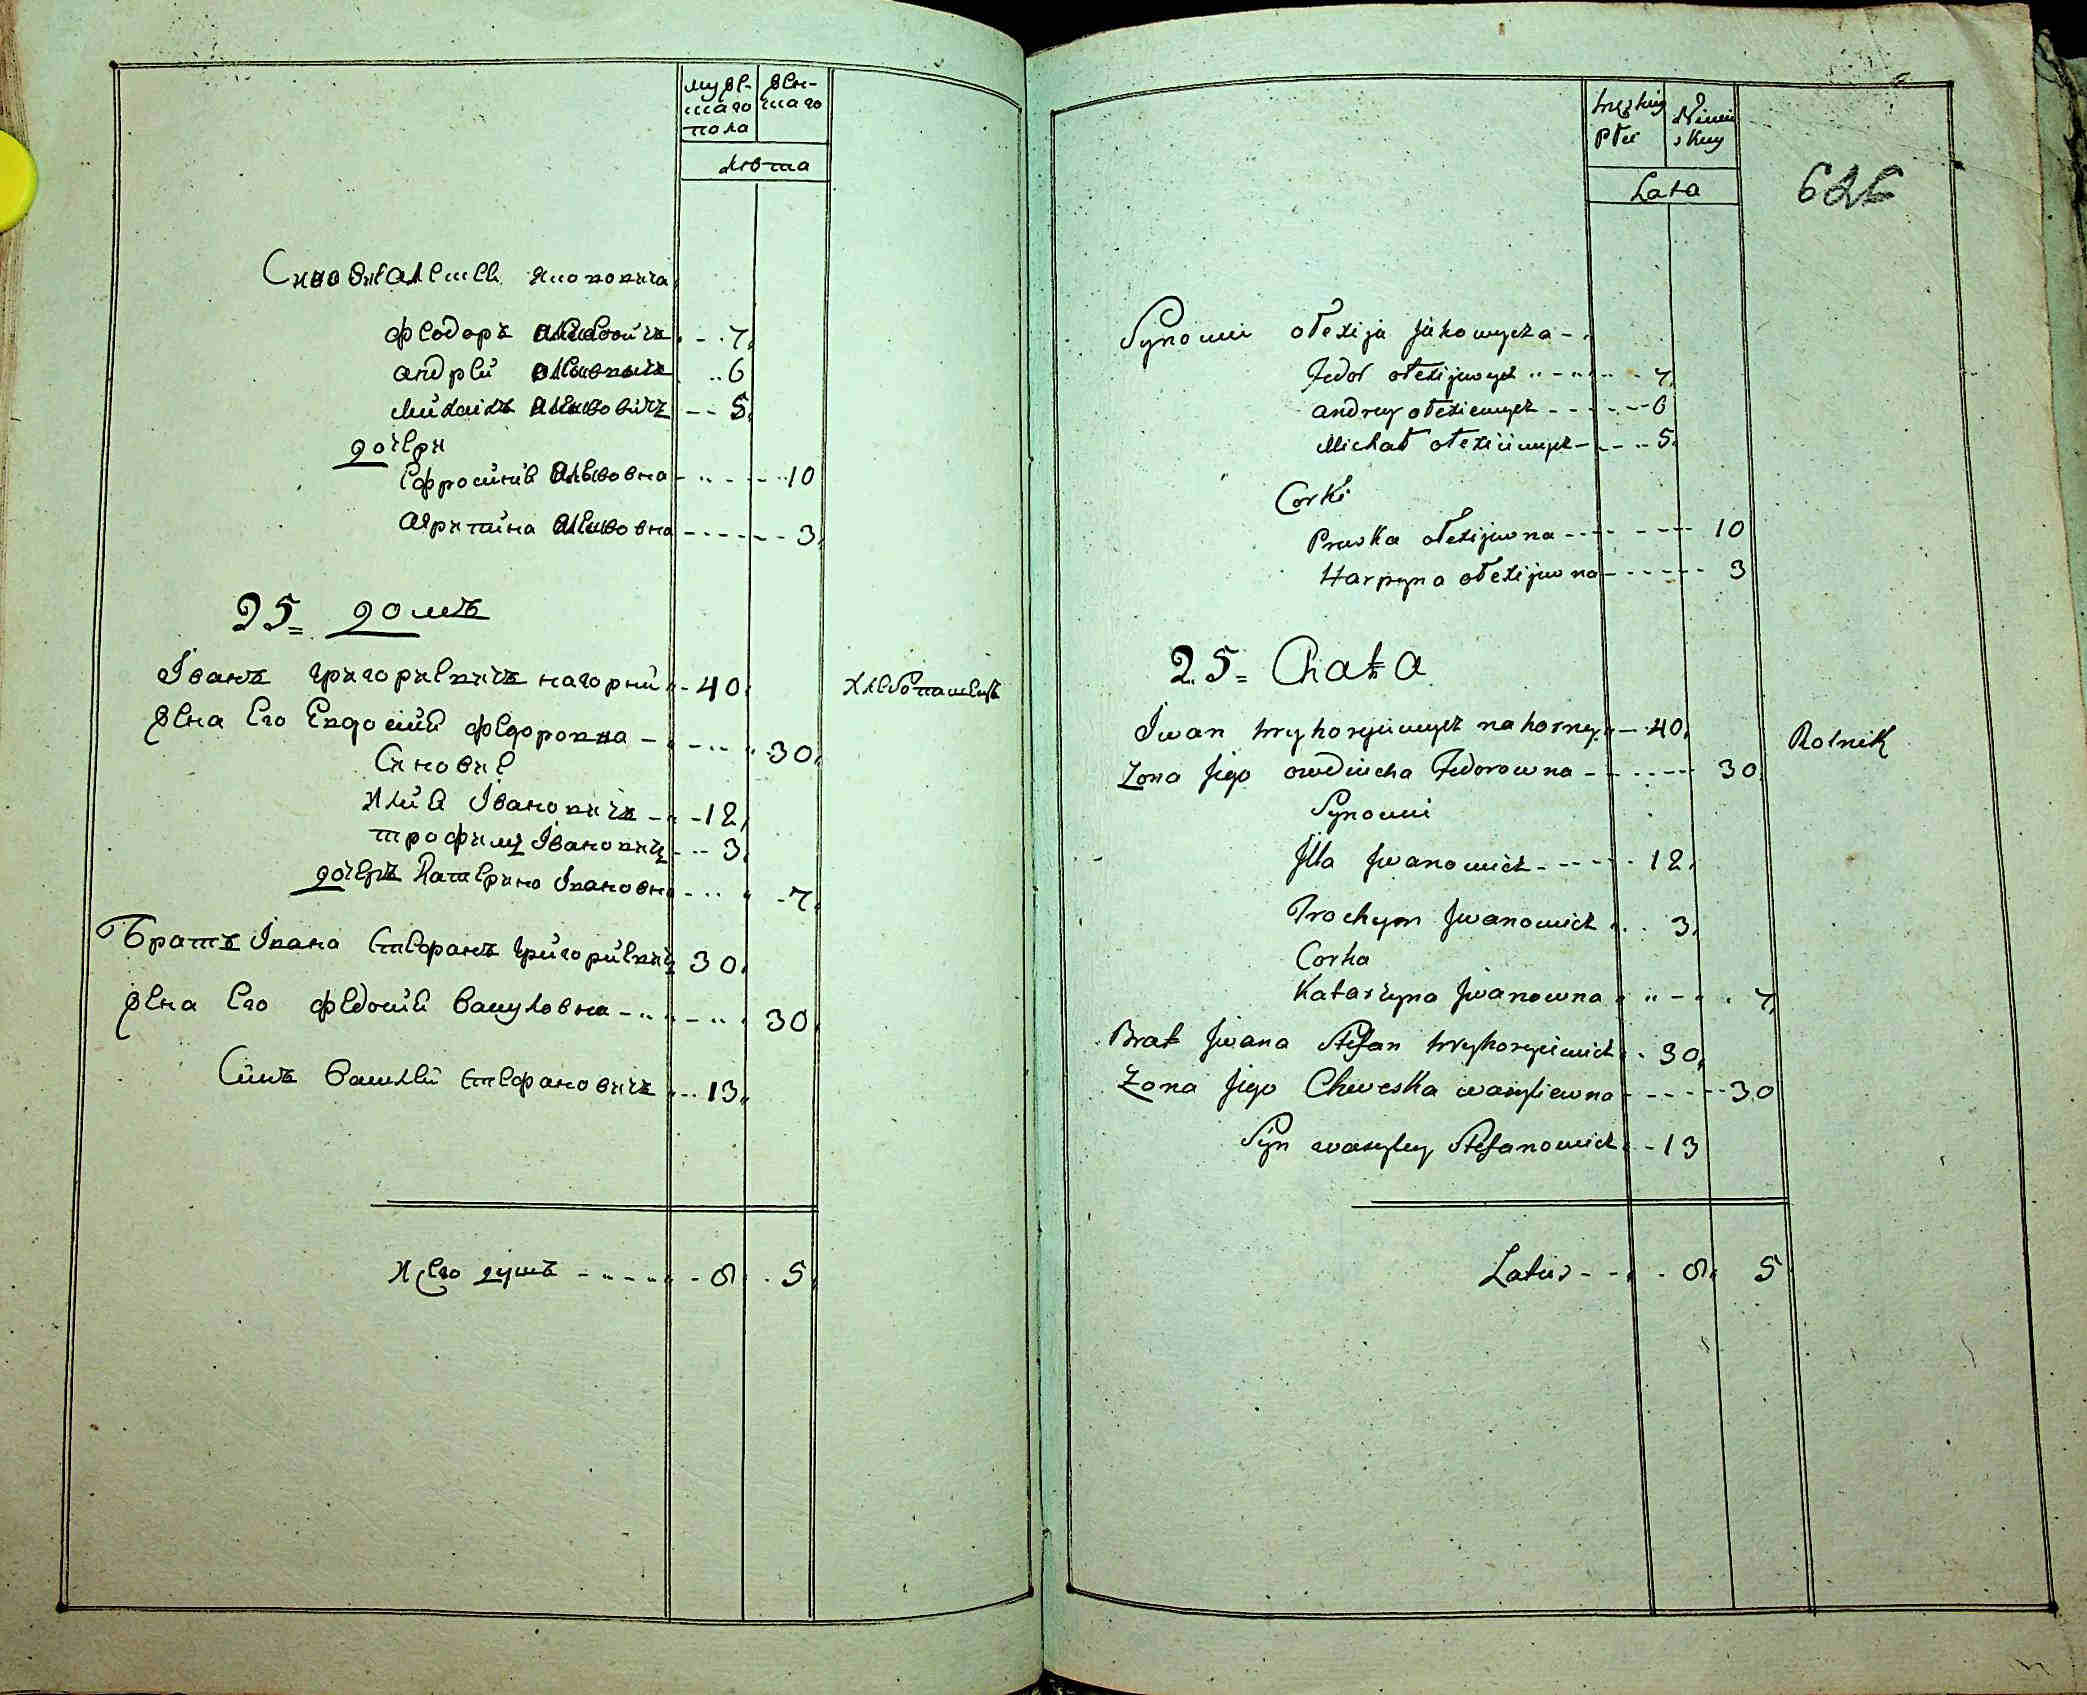 муже-
шаго
пола
жен-
шаго
Лѣта
Синове Алексея Яковича
Феодоръ Алексеевичъ 7
Андрей Алексеевичъ 6
Михаилъ Алексеевичъ 5
дочери
Ефросинiя Алексеевна 10
Агрипина Алексеевна 3
25 = домъ
Іванъ Григориевичъ Нагорний 40
Хлебопашецъ
Жена Его Евдокия Федоровна 30
Синовие
Илия Івановичъ 12
Трофимъ Івановичъ 3
дочеръ Катерина Івановна 7
Братъ Івана Стефанъ Григориевичъ 30
Жена Его Федосия Василовна 30
Синъ Василей Стефановичъ 13
Итого душъ 8 5
męzkiey
Płci
Niewie
skiey
Lata
Synowie ołexija Jakowycza
Fedor ołexijwycz 7
andrey ołexiewycz 6
Michał ołexiiewycz 5
Corki
Pruska ołexijwna 10
Harpyna ołexijwna 3
25 = Chata
Iwan hryhoryiewycz nahorny 40
Rolnik
Zona Jego owdiucha Fedorowna 30
Synowie
Jlla Jwanowicz 12
Trochym Jwanowicz 3
Corka
Katarżyna Jwanowna 7
Brat Jwana Stefan hryhoryiewicz 30
Zona Jego Chweska wasyliewna 30
Syn wasyley Stefanowicz 13
Latus 8 5